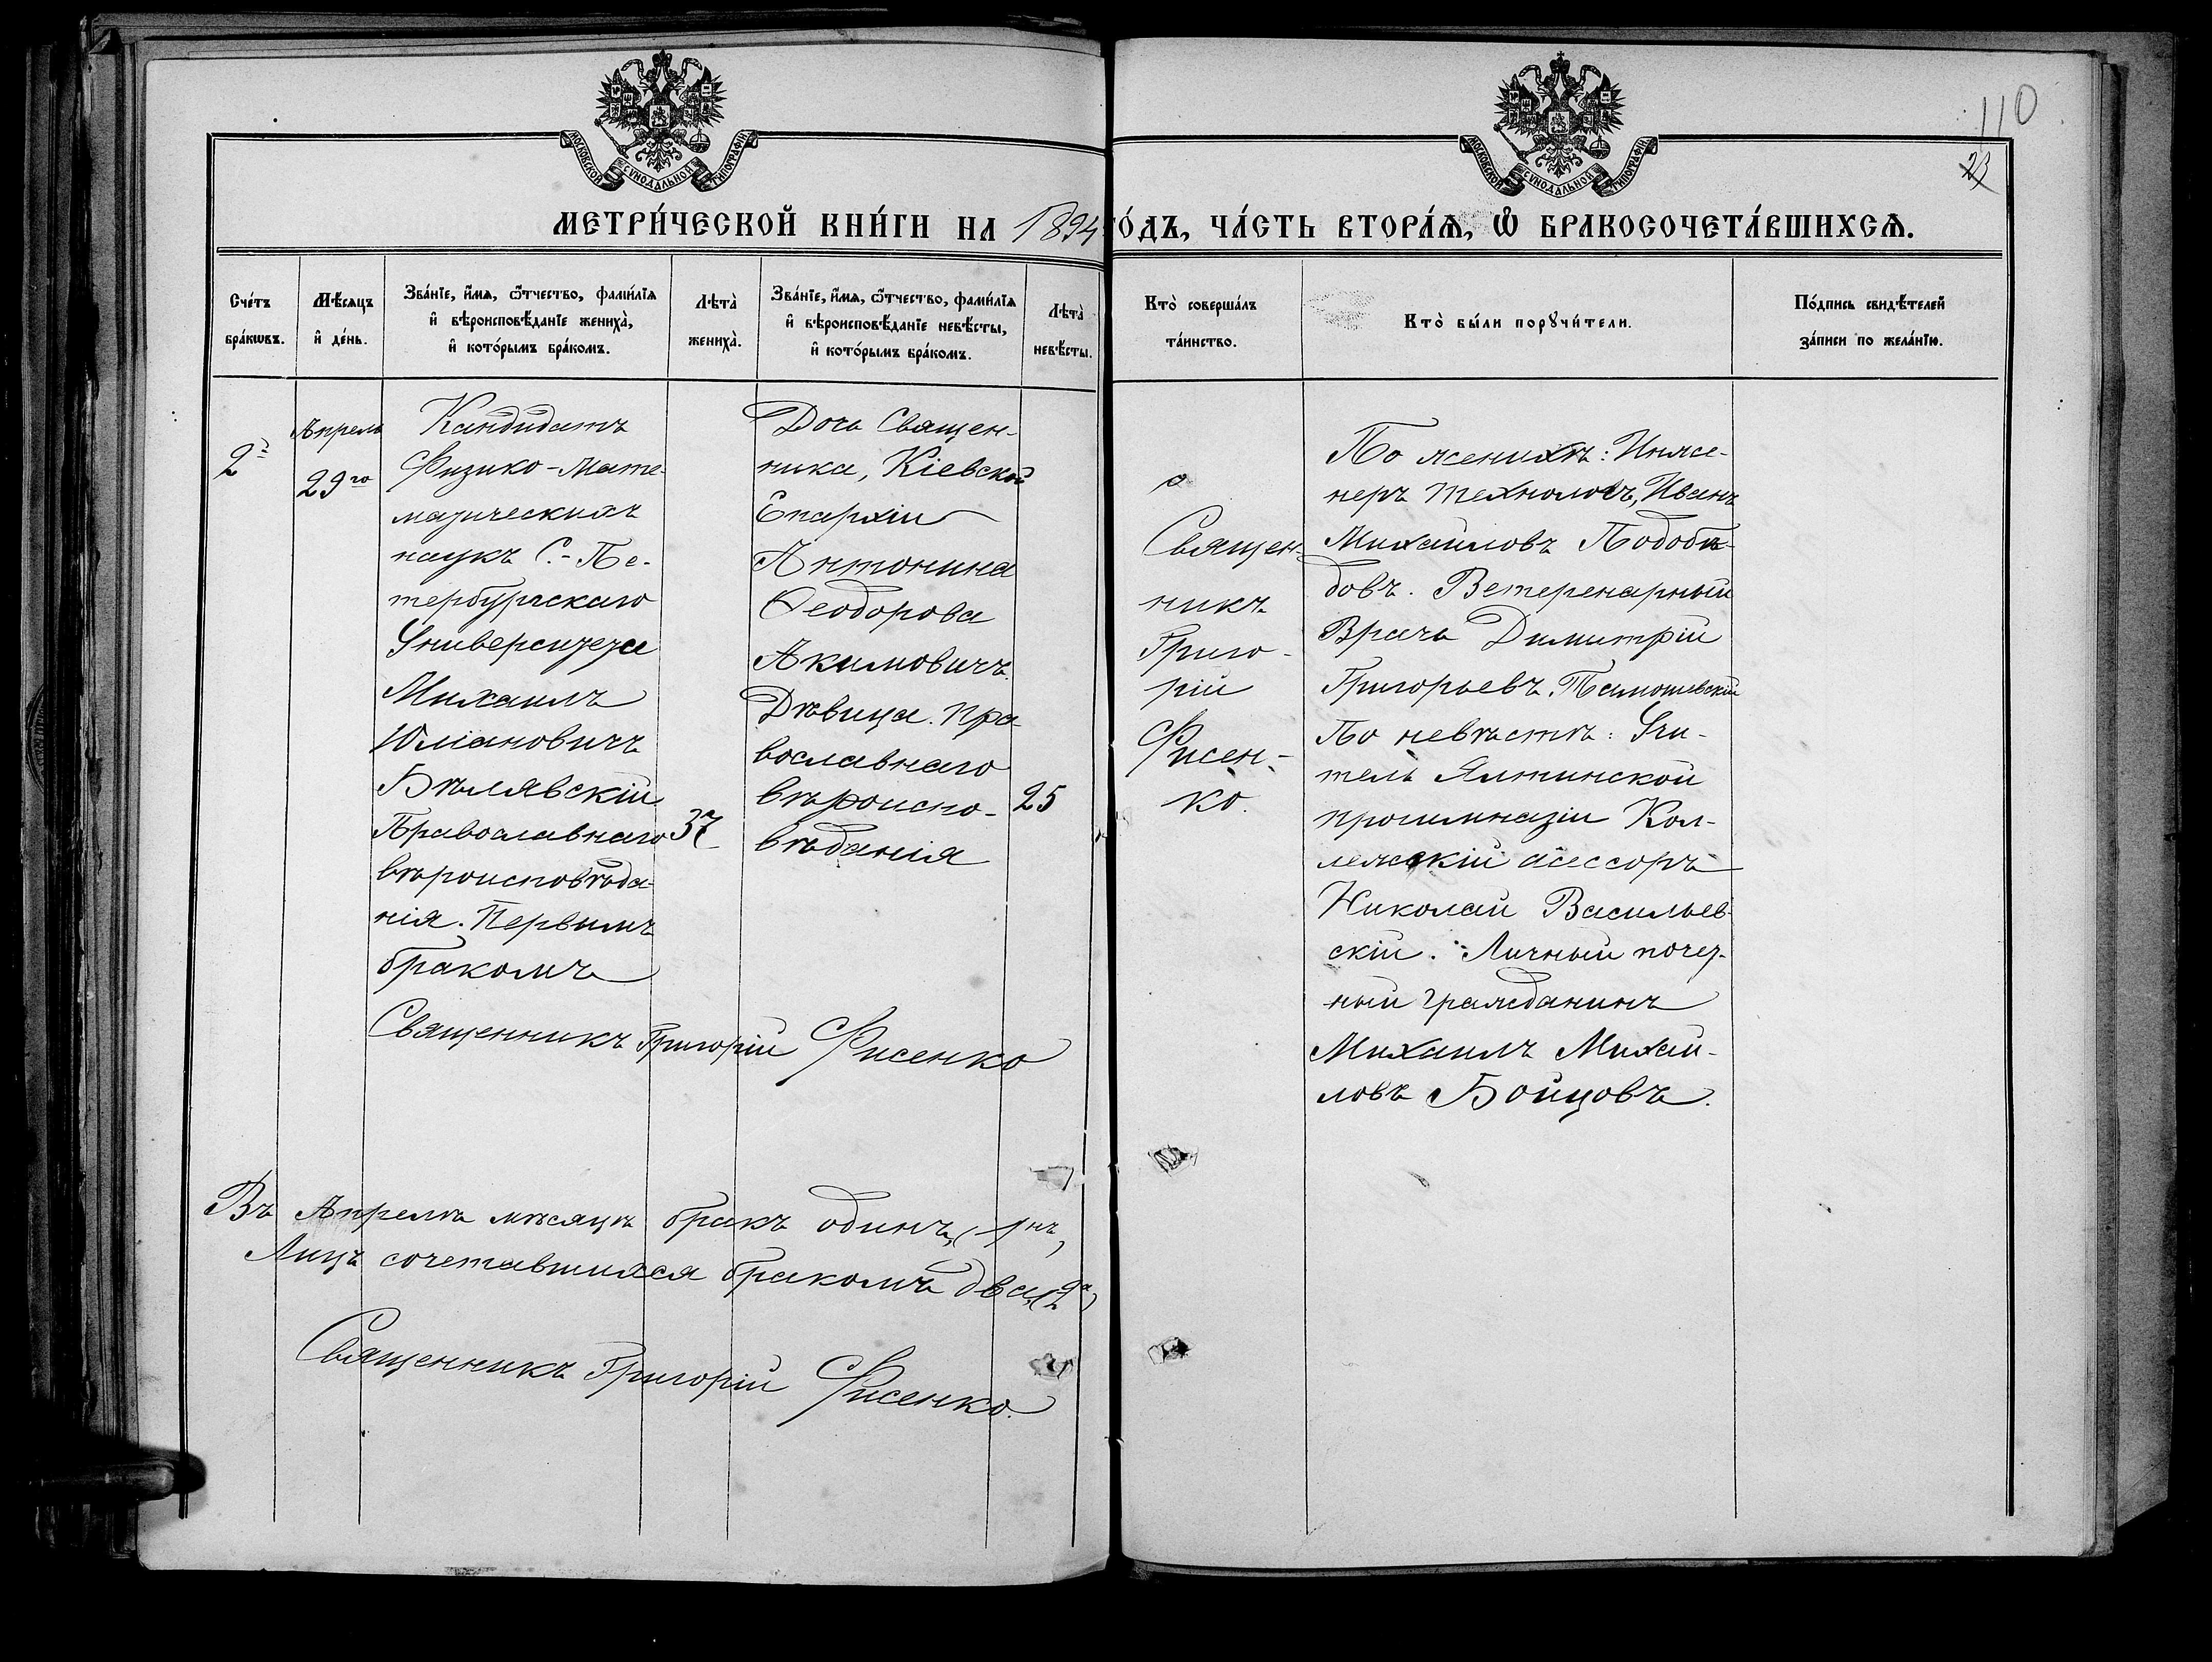 110
23
МОСКОВСКОЙ СѴНОДАЛЬНОЙ ТИПОГРАФІИ
МОСКОВСКОЙ СѴНОДАЛЬНОЙ ТИПОГРАФІИ
МЕТРИ́ЧЕСКОЙ КНИ́ГИ НА 1894 ГО́ДЪ, ЧА́СТЬ ВТОРА́Ѧ, Ѽ БРАКОСОЧЕТА́ВШИХСѦ.
Сче́тъ
бра́кѡвъ.
Мѣ́сѧцъ
и҆ де́нь.
Зва́нїе, и҆́мѧ, ѻ҆́тчество, фами́лїѧ
и҆ вѣроисповѣ́данїе жениха̀,
и҆ кото́рымъ бра́комъ.
Лѣта̀
жениха̀.
Зва́нїе, и҆́мѧ, ѻ҆́тчество, фами́лїѧ
и҆ вѣроисповѣ́данїе невѣ́сты,
и҆ кото́рымъ бра́комъ.
Лѣта̀
невѣ́сты.
Кто̀ соверша́лъ
та́инство.
Кто̀ бы́ли порꙋчи́тели.
По́дпись свидѣ́телей
за́писи по жела́нїю.
2й
Апрель
29го
Кандидатъ
Физико-Мате-
матическихъ
наукъ С.-Пе-
тербургскаго
Университета
Михаилъ
Юліановичъ
Бѣлявскій
Православнаго
вѣроисповѣда-
нія. Первымъ
бракомъ
37
Дочь Священ-
ника, Кіевской
Епархіи
Антонина
Ѳеодорова
Акимовичъ.
Дѣвица. Пра-
вославнаго
вѣроиспо-
вѣданія
25
Священникъ Григорій Фисенко
Священ-
никъ
Григо-
рій
Фисен-
ко.
По женихѣ: Инже-
неръ технологъ, Иванъ
Михаиловъ Подобѣ-
довъ. Ветеренарный
Врачъ Димитрій
Григорьевъ
По невѣстѣ: Учи-
тель Ялтинской
прогимназіи Кол-
лежскій асессоръ
Николай Васильев-
скій. Личный почет-
ный гражданинъ
Михаилъ Михай-
ловъ Бойцовъ.
Въ Апрелѣ мѣсяцѣ бракъ одинъ, (1нъ,
Лицъ сочетавшихся бракомъ два, (2а)
Священникъ Григорій Фисенко.